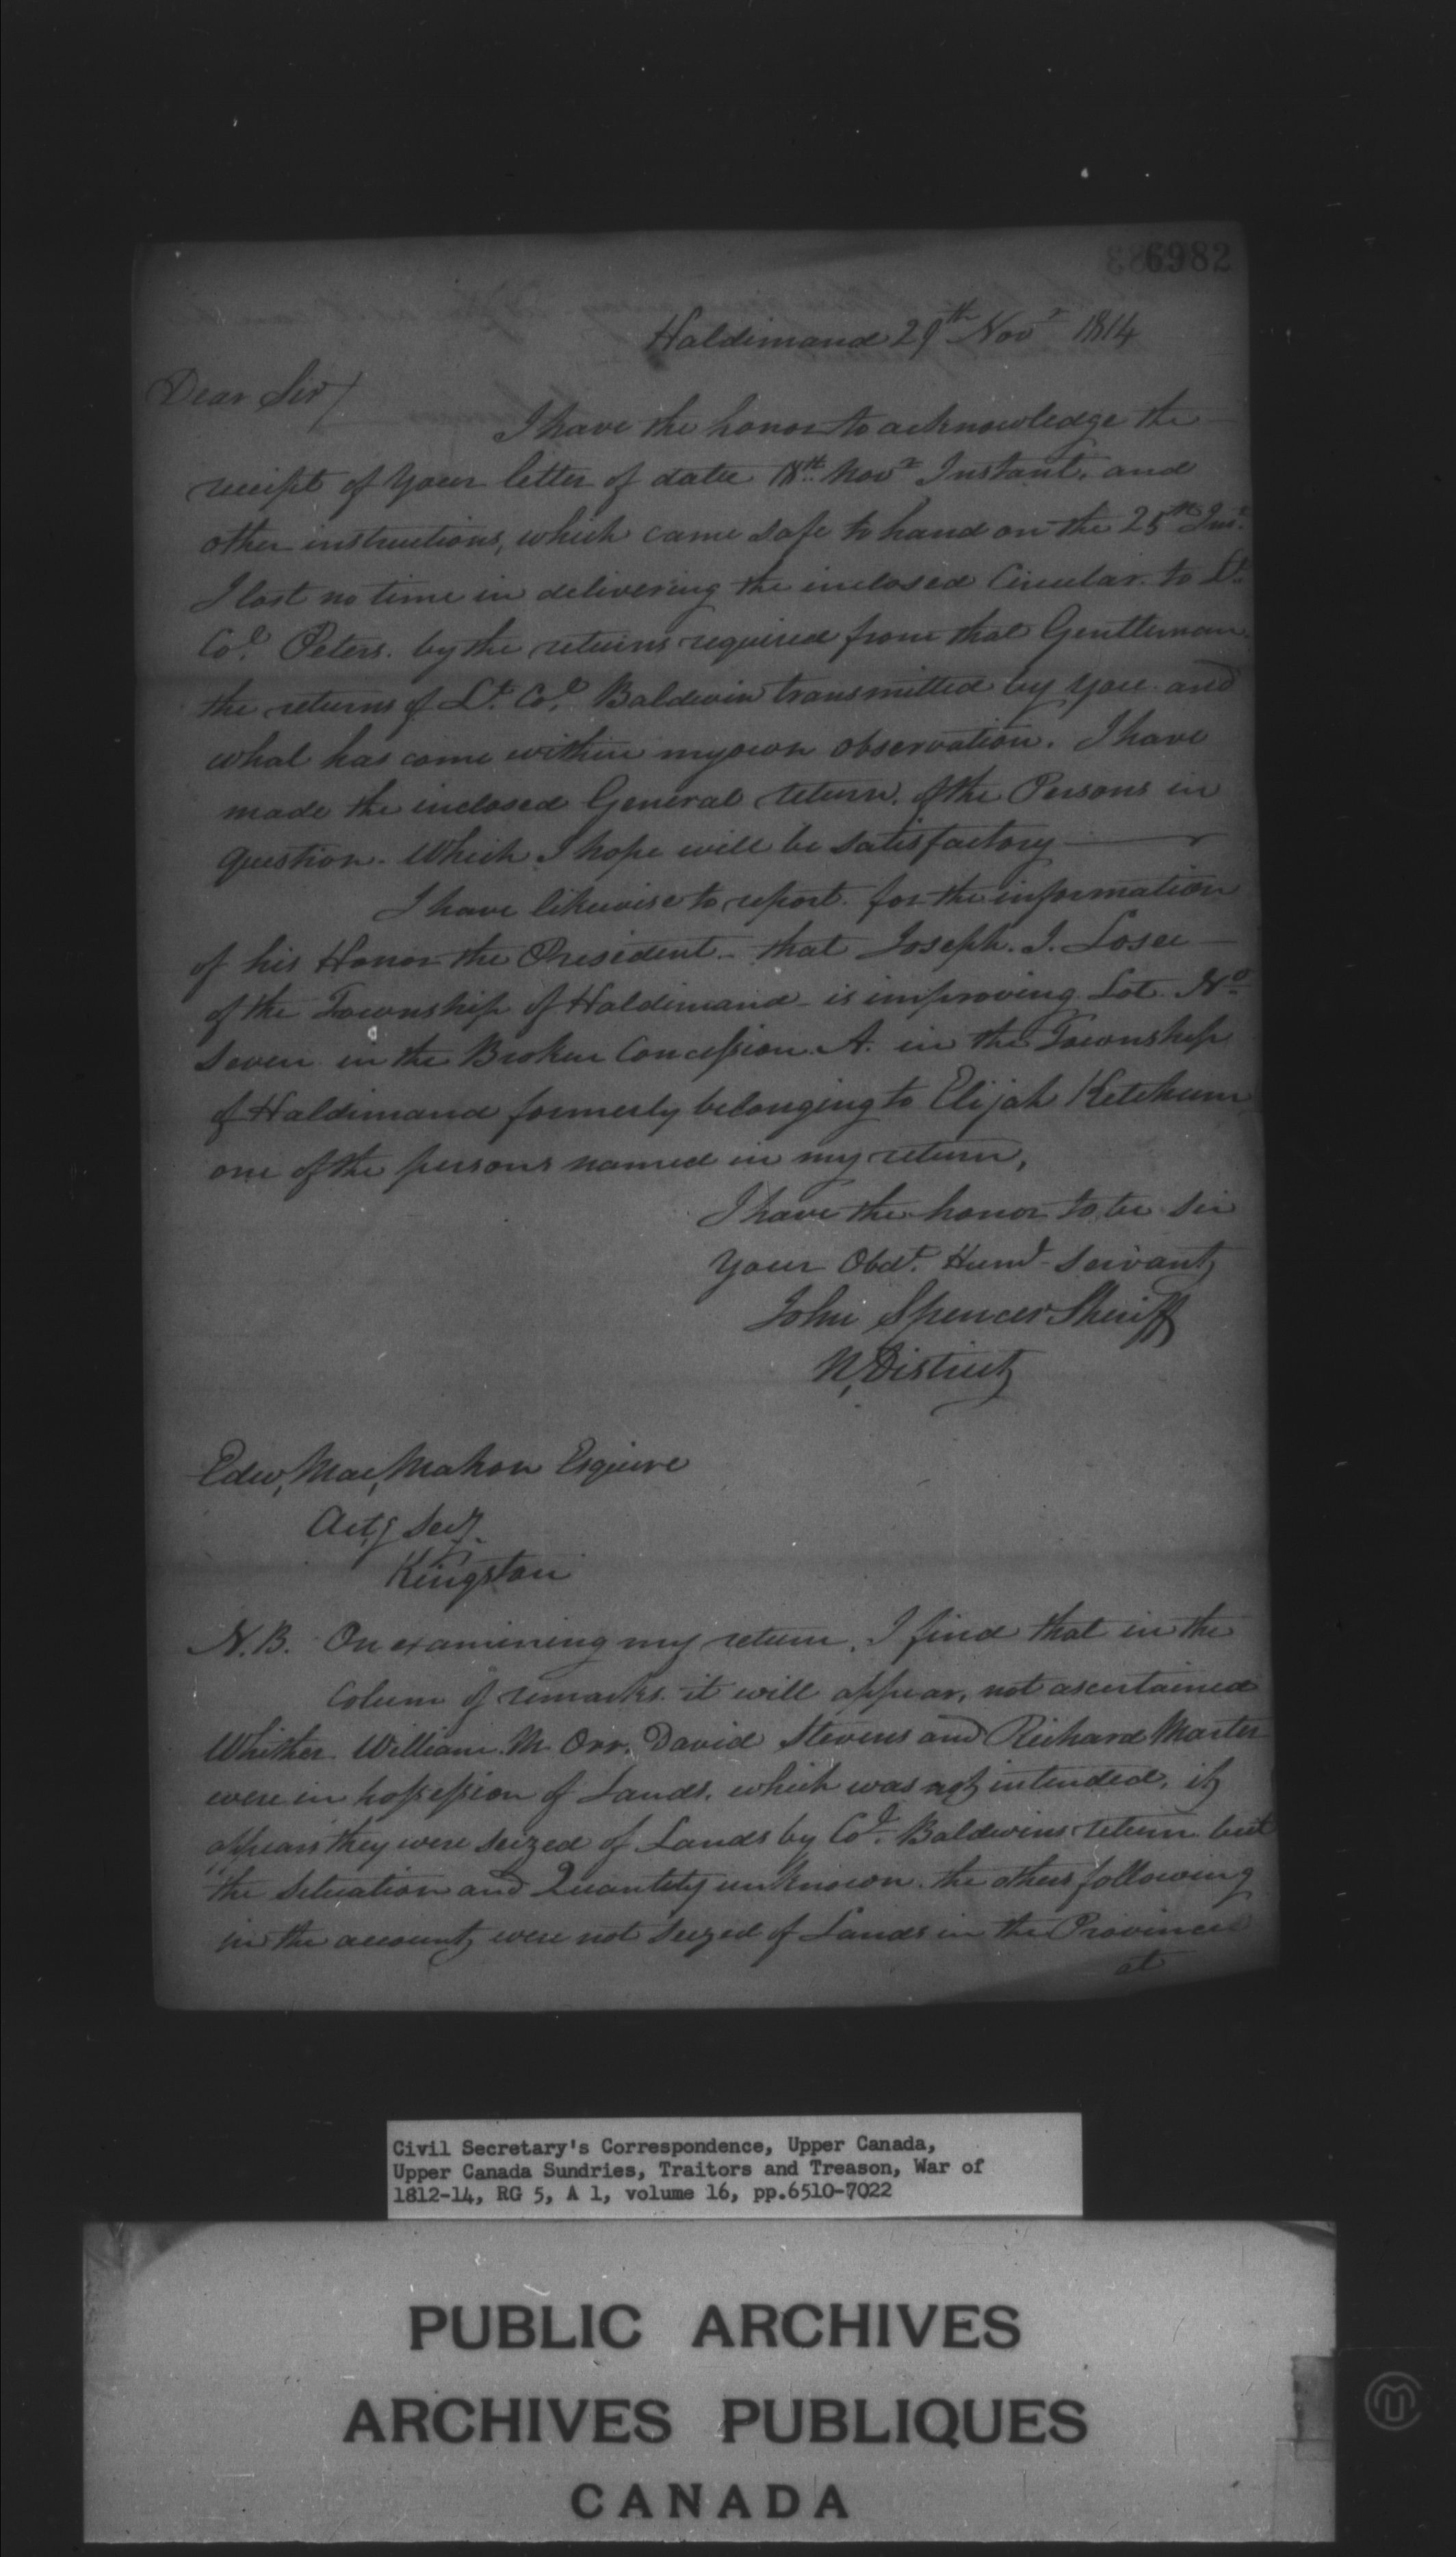 6982
Haldimand 29th Novr 1814
Dear Sir/
I have the honor to acknowledge the
receipt of Your letter of date 18th Novr Instant, and
other instructions, which came safe to hand on the 25th Inst.
I lost no time in delivering the inclosed Circular to Lt.
Col. Peters. by the returns required from that Gentleman.
the returns of Lt. Col. Baldwin transmitted by you and
what has come within my own observation. I have
made the inclosed General return. of the Persons in
question. Which I hope will be satisfactory
I have likewise to report. for the information
of his Honor the President - that Joseph. I. Losee
of the Township of Haldimand is improving Lot No.
Seven in the Broken Concession. A. in the Township
of Haldimand formerly belonging to Elijah Ketchum
one of the persons named in my return,
I have the honor to be Sir
Your Obdt. Huml Servant
John Spencer Sheriff
N, District
Edw, Mac, Mahon Esquire
Act,g Secy.
Kingston
N.B. On examining my return, I find that in the
Colum of remarks. it will appear, not ascertained
Whither William M Orr. David Stevens and Richard Master
were in possession of Lands. which was not intended, it
appears they were seized of Lands by Col. Baldwins return but
the Situation and Quantity unknown. the others following
in the account, were not seized of Lands in the Province
at
Civil Secretary's Correspondence, Upper Canada,
Upper Canada Sundries, Traitors and Treason, War of
1812-14, RG 5, A 1, volume 16, pp.6510-7022
PUBLIC ARCHIVES
ARCHIVES PUBLIQUES
CANADA